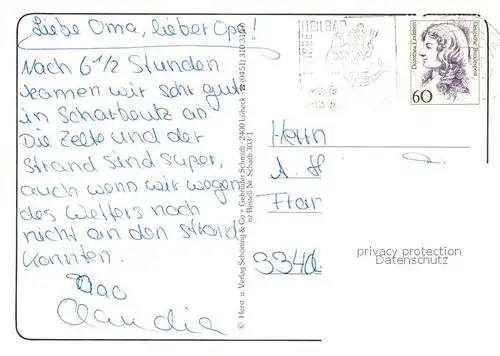 Liebe Oma, lieber Opa!
Nach 6 1/2 Stunden
kamen wir sehr gut
in Scharbeutz an.
Die Zelte und der
Strand sind super,
auch wenn wir wegen
des Wetters noch
nicht an den Strand
konnten.
Ciao
Claudia
© Herst. u. Verlag Schöning & Co + Gebrüder Schmidt · 2400 Lübeck ☎ (0451) 310 310
Bestell-Nr. Scharb 303/1
HEILBAD
Dorothea Erxleben
Deutsche Bundespost
60
Herrn
A. H
Fran
3340
privacy protection
Datenschutz